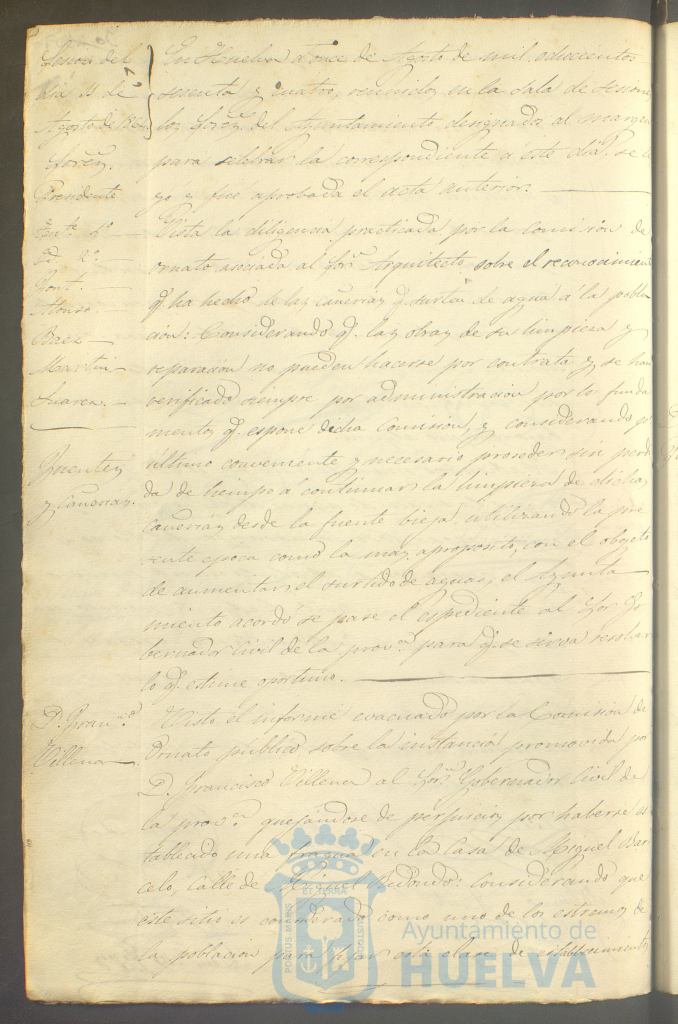 Sesion del
dia 11 de
Agosto de 1864
Señores.
Presidente
Tente. 1º
Id. 2º
Font.
Alonso.
Baez
Martin
Suarez.
Fuentes
y Cañerias.
D. Franco.
Villena
En Huelva a once de Agosto de mil ochocientos
sesenta y cuatro, reunidos en la Sala de Sesiones
los Sores. del Ayuntamiento designados al margen
para celebrar la correspondiente á este dia, se le
yo y fue aprobada el acta anterior.
Vista la diligencia practicada por la Comision de
ornato asociada al Sor. Arquitecto sobre el reconocimiento
q. ha hecho de las cañerias q. surten de agua á la pobla
cion: Considerando q. las obras de su limpieza y
reparacion no pueden hacerse por contrata y se han
verificado siempre por administracion por los funda
mentos q. espone dicha Comision, y considerando p.
último conveniente y necesario proceder sin perdi
da de tiempo á continuar la limpieza de dichas
cañerias desde la fuente vieja utilizando la pre
sente epoca como la mas aproposito, con el objeto
de aumentar el surtido de aguas, el Ayunta
miento acordó se pase el espediente al Sor. Go
bernador Civil de la prova. para q. se sirva resolver
lo q. estime oportuno.
Visto el informe evacuado por la Comision de
Ornato público sobre la instancia promovida por
D. Francisco Villena al Sor. Gobernador Civil de
la prova. quejandose de perjuicios por haberse es
tablecido una fragua en la Casa de Miguel Bar
celo, Calle de Miguel Redondo: Considerando que
este sitio es considerado como uno de los estremos de
la poblacion para fijar esta clase de establecimientos
PORTUS MARIS
ET TERRA
CUSTODIA
Ayuntamiento de
HUELVA